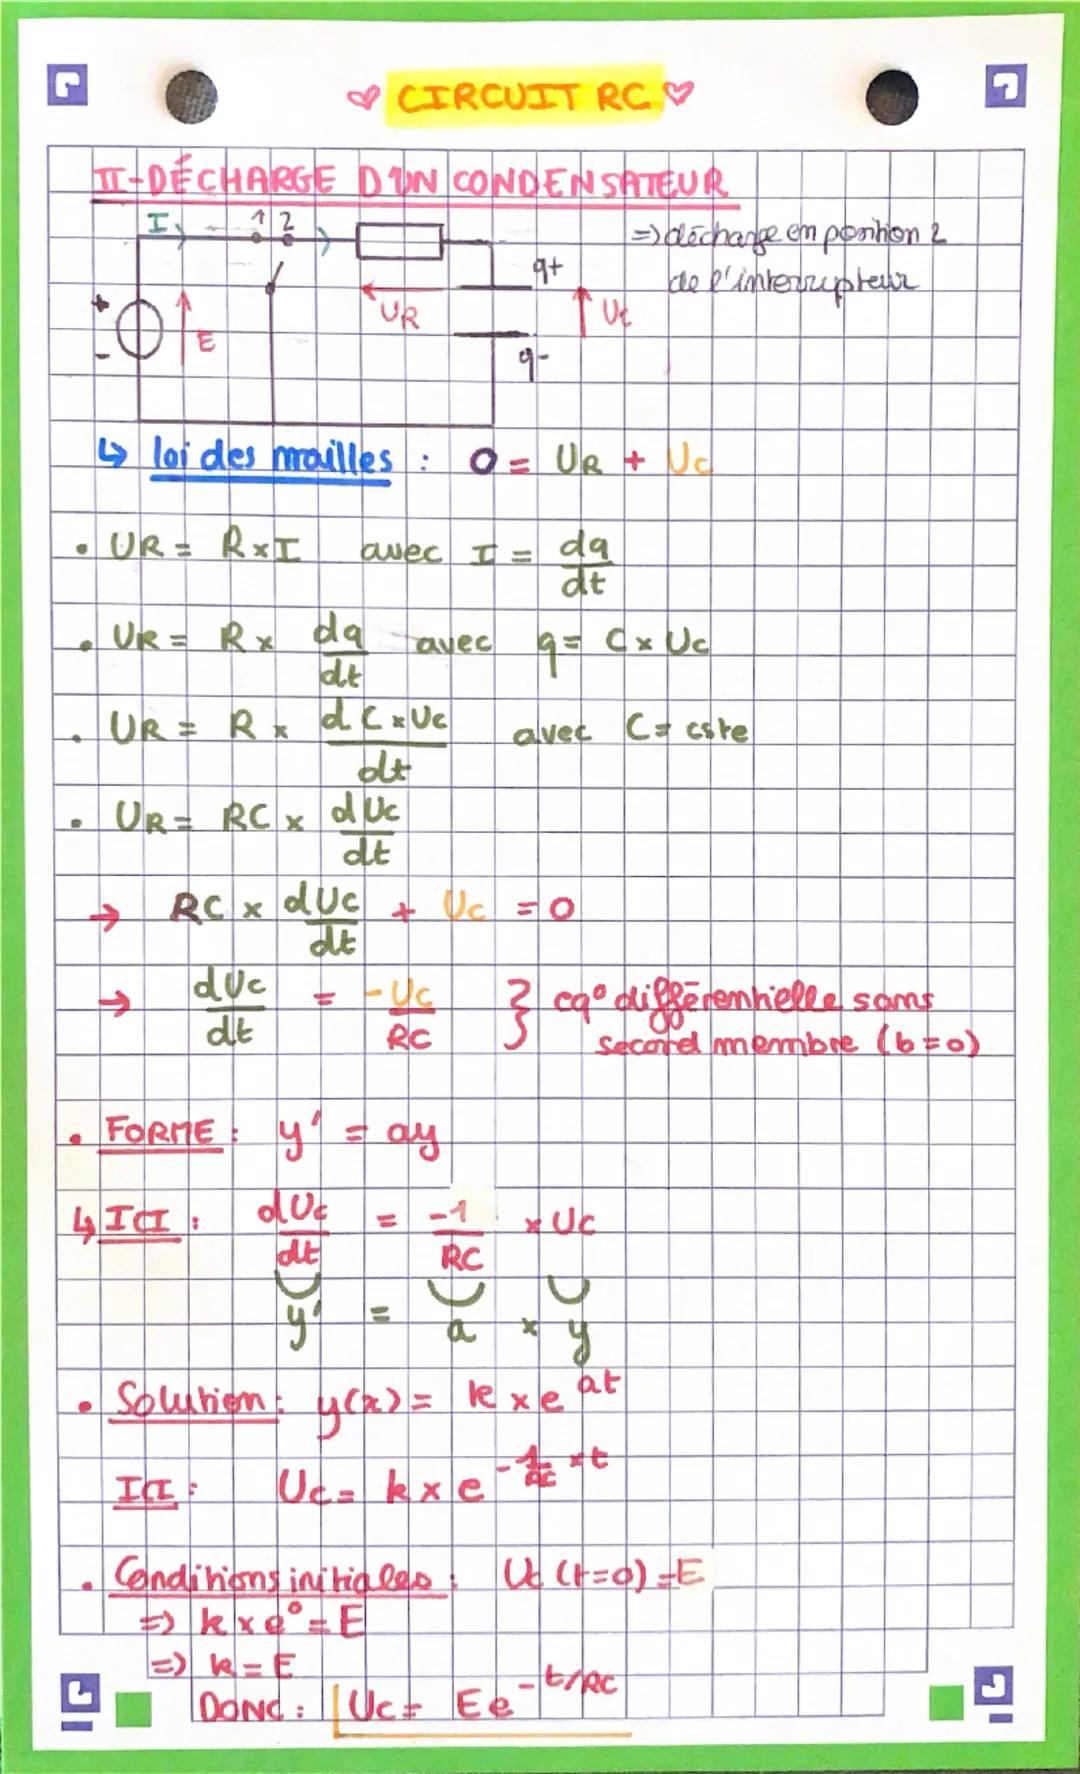 ♡ CIRCUIT RC ♡
II-DÉCHARGE D'UN CONDENSATEUR
I 1 2
=> décharge en position 2
de l'interrupteur
q+
+ UR Uc
- E
q-
↳ loi des mailles : 0 = UR + Uc
• UR = R×I avec I = dq/dt
• UR = R × dq/dt avec q = C × Uc
• UR = R × d C × Uc/dt avec C = cste
• UR = RC × dUc/dt
→ RC × dUc/dt + Uc = 0
→ dUc/dt = -Uc/RC } eq° différentielle sans
second membre (b=0)
• FORME : y' = ay
↳ ICI : dUc/dt = -1/RC × Uc
y' = a × y
• Solution : y(x) = k × e^at
ICI : Uc = k × e^-1/RC × t
• Conditions initiales : Uc (t=0) = E
=> k × e° = E
=> k = E
DONC : Uc = Ee^-t/RC